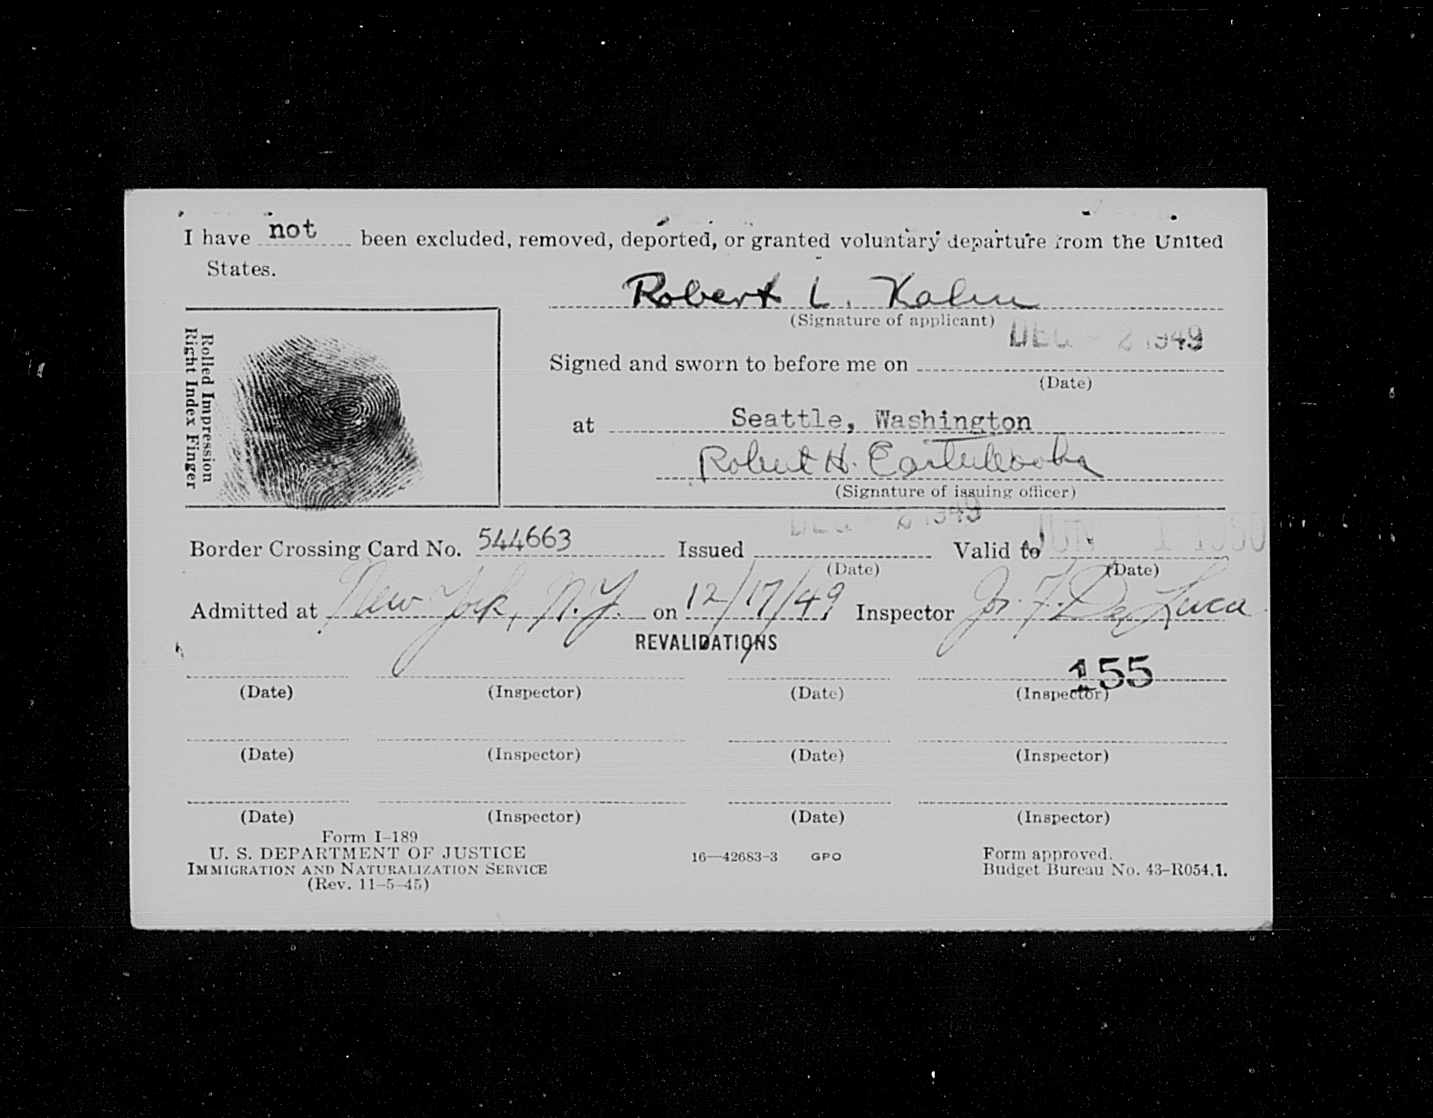 I have not been excluded, removed, deported, or granted voluntary departure from the United
States.
Robert L. Kahn
(Signature of applicant)
DEC - 2 1949
Signed and sworn to before me on
(Date)
at Seattle, Washington
Robert H.
(Signature of issuing officer)
Rolled Impression
Right Index Finger
DEC - 2 1949 JUN 1 1950
Border Crossing Card No. 544663 Issued Valid to
(Date) (Date)
Admitted at New York, N.Y. on 12/17/49 Inspector Jos. F. De Luca
REVALIDATIONS
155
(Date) (Inspector) (Date) (Inspector)
(Date) (Inspector) (Date) (Inspector)
(Date) (Inspector) (Date) (Inspector)
Form I-189
U. S. DEPARTMENT OF JUSTICE
IMMIGRATION AND NATURALIZATION SERVICE
(Rev. 11-5-45)
16—42683-3 GPO
Form approved.
Budget Bureau No. 43-R054.1.